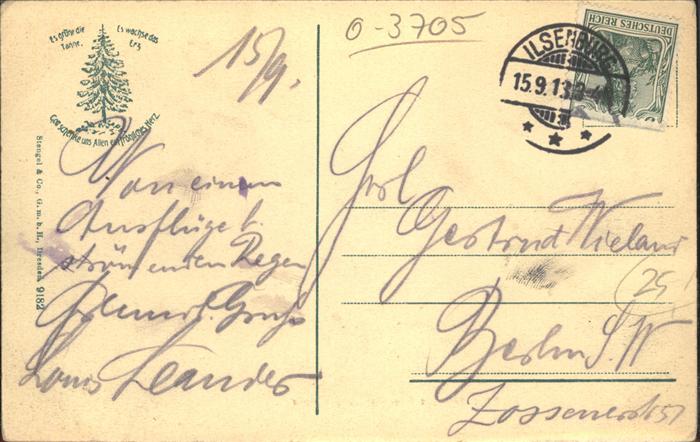 Es grüne die Tanne,
Es wachse das Erz
Gott schenke uns Allen ein fröhliches Herz.
Stengel & Co., G. m. b. H., Dresden 9182
15/9.
0-3705
ILSENBURG
15.9.13
DEUTSCHES REICH
Von einem
Ausfluge b.
strömenden Regen
Gruß
Louis Leander
Frl.
Gertrud Wieland
25
Berlin S.W
Zossenerstr 51